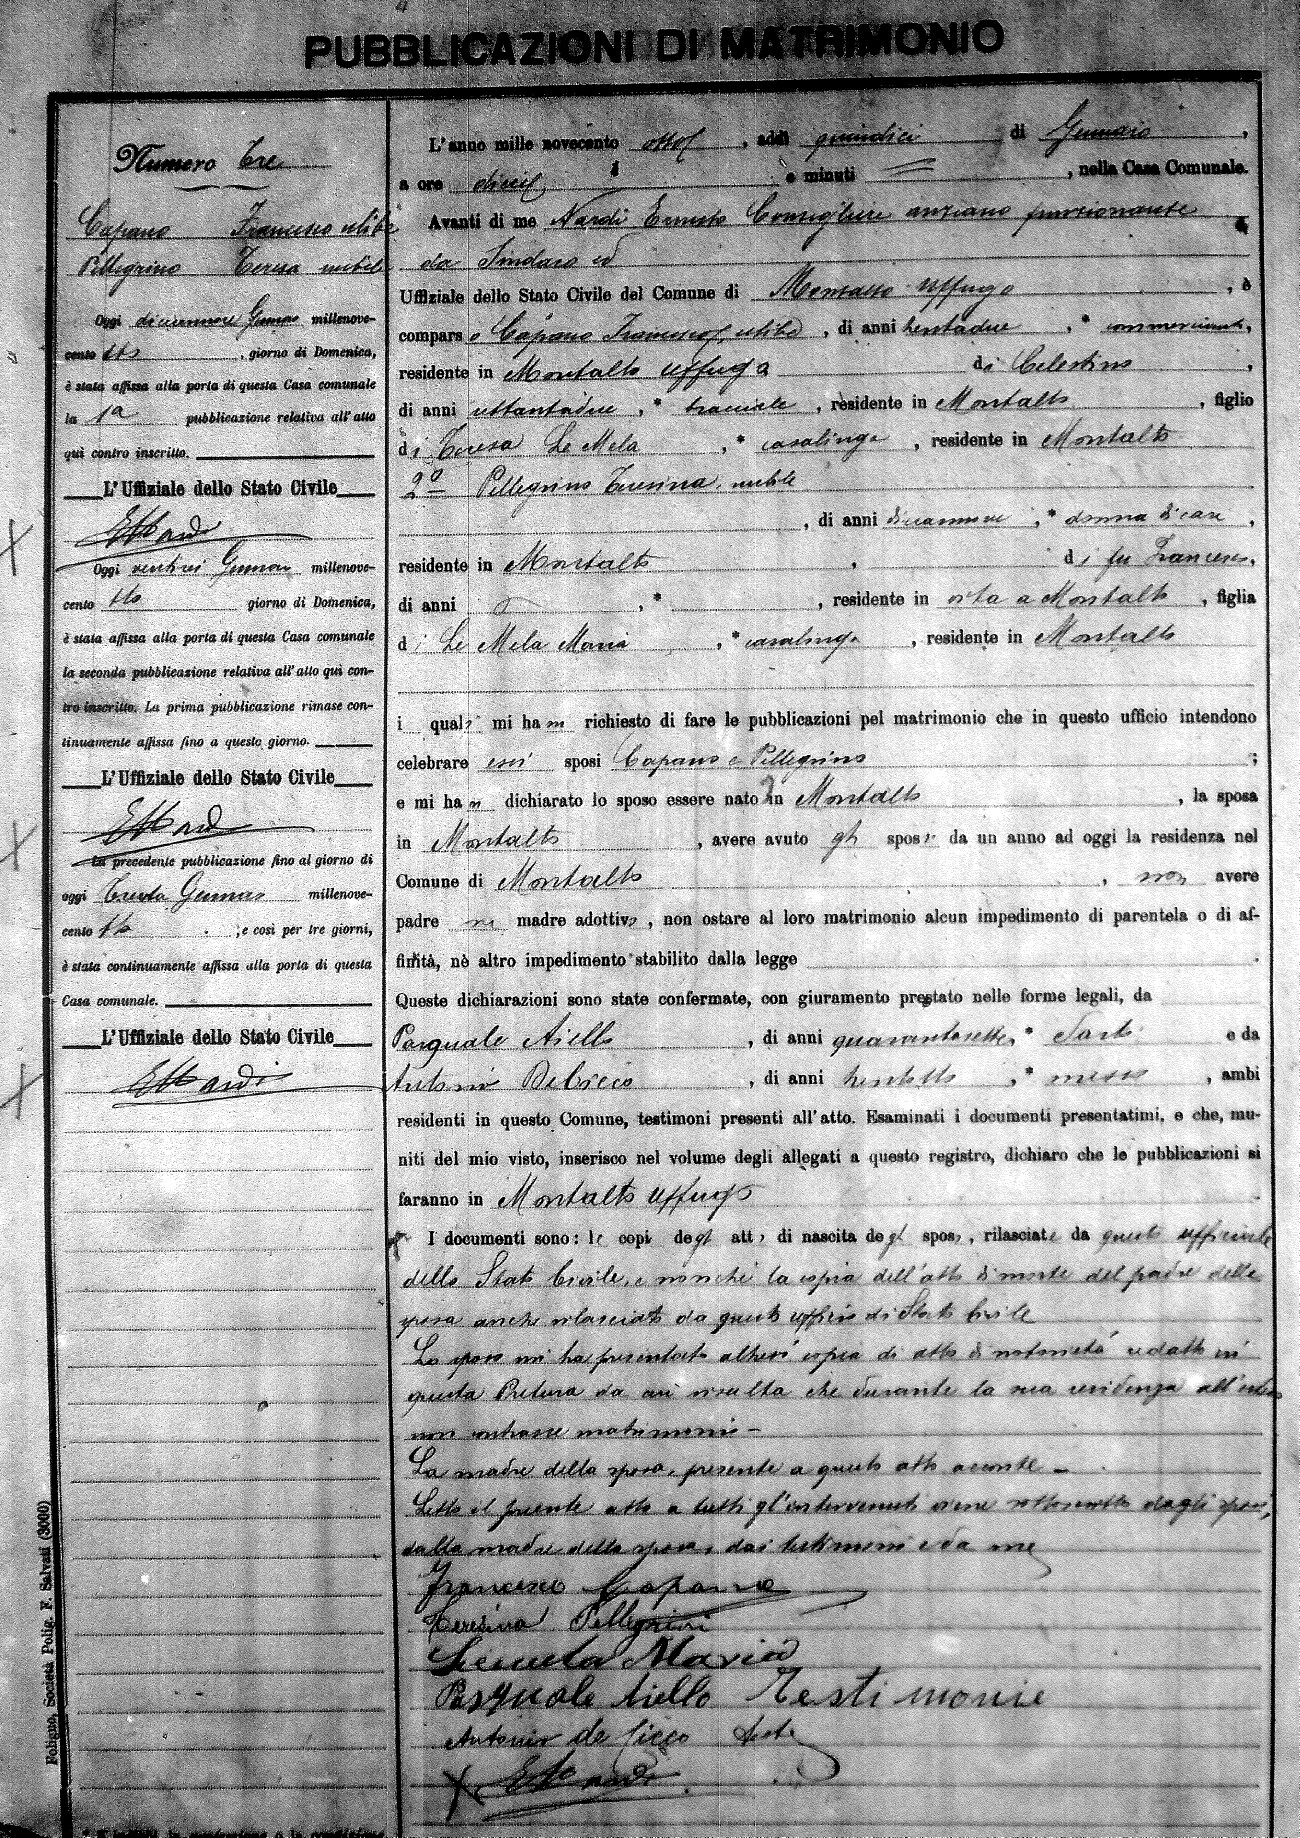 PUBBLICAZIONI DI MATRIMONIO
Numero Tre
Capano Francesco celibe
Pellegrino Teresa nubile
Oggi diciannove Gennaio millenove-
cento otto, giorno di Domenica,
è stata affissa alla porta di questa Casa comunale
la 1a pubblicazione relativa all'atto
quì contro inscritto.
L'Uffiziale dello Stato Civile
ENardi
Oggi ventisei Gennaio millenove-
cento otto giorno di Domenica,
è stata affissa alla porta di questa Casa comunale
la seconda pubblicazione relativa all'atto quì con-
tro inscritto. La prima pubblicazione rimase con-
tinuamente affissa fino a questo giorno.
L'Uffiziale dello Stato Civile
ENardi
La precedente pubblicazione fino al giorno di
oggi Trenta Gennaio millenove-
cento otto, e così per tre giorni,
è stata continuamente affissa alla porta di questa
Casa comunale.
L'Uffiziale dello Stato Civile
ENardi
Foligno, Società Polig. F. Salvati (3000)
L'anno mille novecento otto, addì quindici di Gennaio,
a ore dieci e minuti, nella Casa Comunale.
Avanti di me Nardi Ernesto Consigliere anziano funzionante
da Sindaco ed
Uffiziale dello Stato Civile del Comune di Montalto Uffugo, è
comparso Capano Francesco, celibe, di anni trentadue, * commerciante,
residente in Montalto Uffugo di Celestino,
di anni ottantadue, * bracciale, residente in Montalto, figlio
di Teresa Le Mela, * casalinga, residente in Montalto
2° Pellegrino Teresina, nubile
, di anni diciannove, * donna di casa,
residente in Montalto, di fu Francesco,
di anni, * , residente in vita a Montalto, figlia
di Le Mela Maria, * casalinga, residente in Montalto
i quali mi han richiesto di fare le pubblicazioni pel matrimonio che in questo ufficio intendono
celebrare essi sposi Capano e Pellegrino;
e mi han dichiarato lo sposo essere nato in Montalto, la sposa
in Montalto, avere avuto gli sposi da un anno ad oggi la residenza nel
Comune di Montalto, non avere
padre nè madre adottivi, non ostare al loro matrimonio alcun impedimento di parentela o di af-
finità, nè altro impedimento stabilito dalla legge
Queste dichiarazioni sono state confermate, con giuramento prestato nelle forme legali, da
Pasquale Aiello, di anni quarantasette, * Sarto e da
Antonio DeCicco, di anni trentotto, * messo, ambi
residenti in questo Comune, testimoni presenti all'atto. Esaminati i documenti presentatimi, e che, mu-
niti del mio visto, inserisco nel volume degli allegati a questo registro, dichiaro che le pubblicazioni si
faranno in Montalto Uffugo
I documenti sono: le copie degli atti di nascita degli sposi, rilasciate da questo ufficiale
dello Stato Civile, e nonchè la copia dell'atto di morte del padre della
sposa anche rilasciato da questo ufficio di Stato Civile
Lo sposo mi ha presentato altresì copia di atto di notorietà redatto in
questa Pretura da cui risulta che durante la sua residenza all'estero
non contrasse matrimonio –
La madre della sposa, presente a questo atto acconsente –
Letto il presente atto a tutti gl'intervenuti viene sottoscritto dagli sposi,
dalla madre della sposa, dai testimoni e da me
Francesco Capano
Teresina Pellegrini
Lemela Maria
Pasquale Aiello Testimonie
Antonio de Cicco teste
ENardi